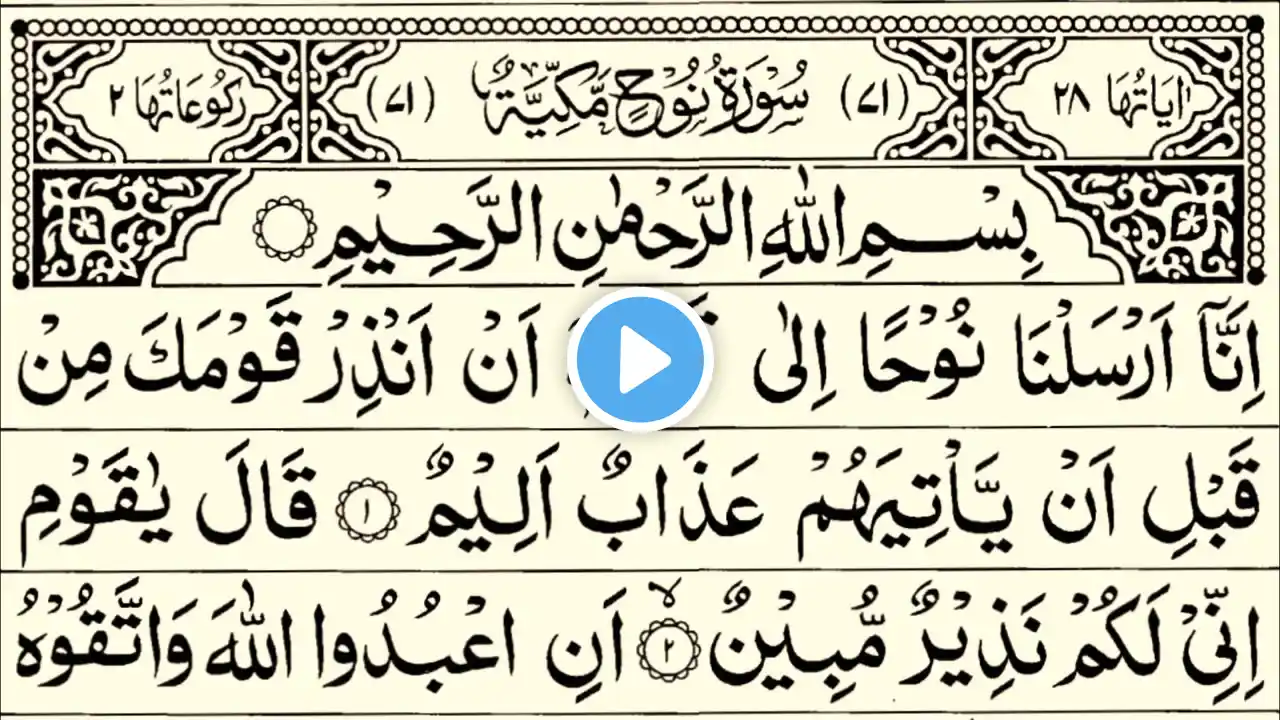 اٰیَاتُهَا ٢٨ (٧١) سُوْرَةُ نُوْحٍ مَّكِّیَّةٌ (٧١) رُكُوْعَاتُهَا ٢
بِسْمِ اللّٰهِ الرَّحْمٰنِ الرَّحِیْمِ
اِنَّاۤ اَرْسَلْنَا نُوْحًا اِلٰی اَنْ اَنْذِرْ قَوْمَكَ مِنْ
قَبْلِ اَنْ یَّاْتِیَهُمْ عَذَابٌ اَلِیْمٌ ١ قَالَ یٰقَوْمِ
اِنِّیْ لَكُمْ نَذِیْرٌ مُّبِیْنٌ ٢ اَنِ اعْبُدُوا اللّٰهَ وَاتَّقُوْهُ